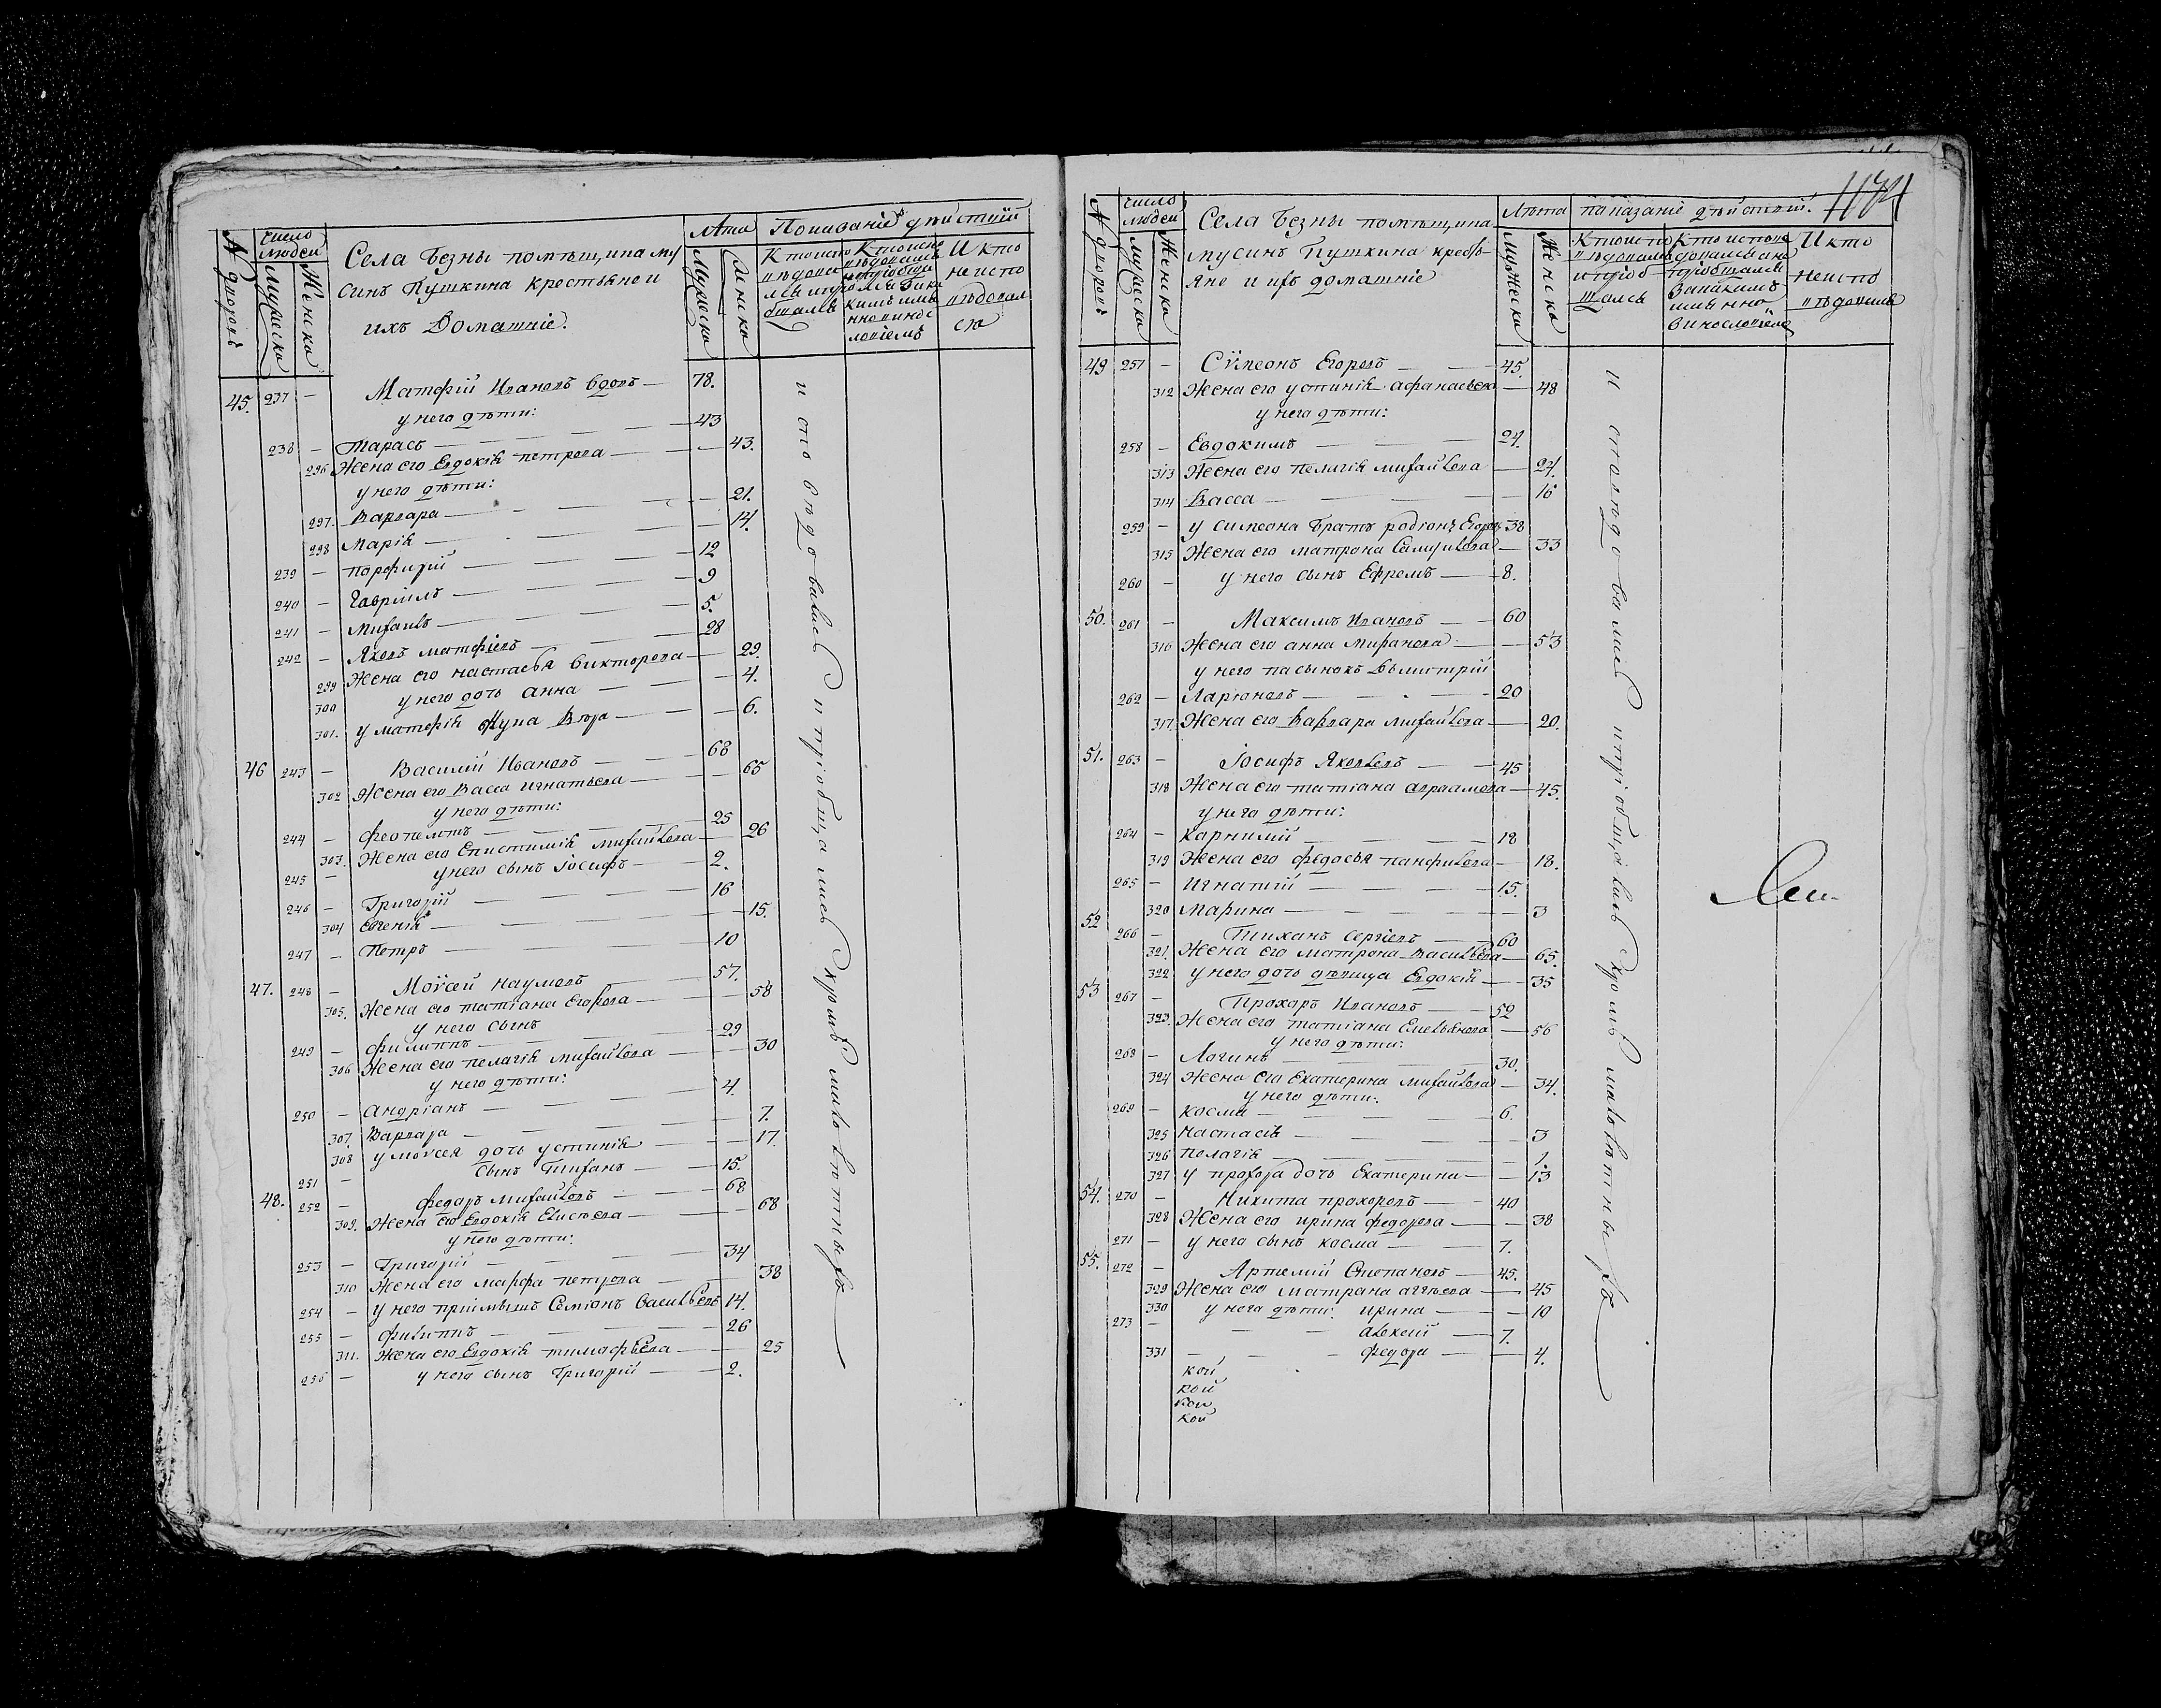 № дворовъ
число людей
Мужеска
Женска
Села Безны помѣщика му
синъ Пушкина крестьяне и
ихъ Домашніе.
Лѣта
Мужеска
Женска
Показаніе дѣйствій
И кто
неиспо
вѣдовал
ся
45. 237 – Матфій Ивановъ вдовъ — 78.
у него дѣти:
238 – Тарасъ — 43
296 Жена его Евдокія петрова — 43.
у него дѣти:
297. Варвара — 21.
298 Марія — 14.
239 – порфирій — 12
240 – Гавріилъ — 9
241 – Михаилъ — 5.
242 – Яковъ матфіевъ — 28
299 Жена его настасья викторова — 29.
300 у него дочь анна — 4.
301. у матфія внука Вѣра — 6.
46 243 – Василій Ивановъ — 68
302 Жена его Васса игнатьева — 65
у него дѣти:
244 – феопемтъ — 25
303. Жена его Епистимія михайлова — 26
245 – у него сынъ Іосифъ — 2.
246 – Григорій — 16
304 Евгенія — 15.
247 – Петръ — 10
47. 248 – Моѵсей наумовъ — 57.
305. Жена его татіана Егорова — 58
у него сынъ
249 – филиппъ — 29
306 Жена его пелагія михайлова — 30
у него дѣти:
250 – андріанъ — 4.
307. Варвара — 7.
308 у моѵсея дочь устинія — 17.
251 – сынъ тиханъ — 15.
48. 252 – федоръ михайловъ — 68
309. Жена его Евдокія Елисѣева — 68
у него дѣти:
253 – Григорій — 34
310 Жена его марфа петрова — 38
254 – у него пріимышъ Семіонъ васильевъ 14.
255 – филиппъ — 26
311. жена его Евдокія тимофѣева — 25
256 – у него сынъ Григорій — 2.
и споведовались и пріобщались кромѣ малолетныхъ
№ дворовъ
число людей
Мужеска
Женска
Села Безны помѣщика
мусинъ Пушкина кресть-
яне и ихъ домашніе
Лѣта
Мужеска
Женска
показаніе дѣйствій.
И кто
неиспо
вѣдовались
49 257 – Сѵмеонъ Егоровъ — 45.
312 Жена его устинія афанасьева — 48
у него дѣти:
258 – Евдокимъ — 24.
313 Жена его пелагія михайлова — 24.
314 Васса — 16
259 – у симеона братъ родіонъ Егоровъ 38
315 Жена его матрона Самуилова — 33
260 – у него сынъ Ефремъ — 8.
50. 261 – Максимъ Ивановъ — 60
316 Жена его анна — 53
у него пасынокъ Димитрій
262 – Ларіоновъ — 20
317. Жена его Варвара михайлова — 20.
51. 263 – Іосифъ Яковлевъ — 45
318 Жена его татіана авраамова — 45.
у него дѣти:
264 – карнилій — 18
319 Жена его федосья панфилова — 18.
265 – игнатій — 15.
320 Марина — 3
52 266 – Тиханъ Сергіевъ — 60
321. Жена его матрона васильева — 65.
322 у него дочь дѣвица Евдокія — 35
53 267 – Прохоръ Ивановъ — 52
323. Жена его татіана Емельянова — 56
у него дѣти:
268 – Логинъ — 30.
324 Жена его Екатерина михайлова — 34.
у него дѣти:
269 – косма — 6.
325 настасія — 3
326 пелагія — 1.
327 у прохора дочь Екатерина — 13
54. 270 – Никита прохоровъ — 40
328 Жена его ирина федорова — 38
271 – у него сынъ косма — 7.
55. 272 – Артемій Степановъ — 45.
329 Жена его матрана аггѣева — 45
330 у него дѣти: ирина — 10
273 – алексій — 7.
331 – федора — 4.
кой
кой
кой
кой
и споведовались и пріобщались кромѣ малолетныхъ